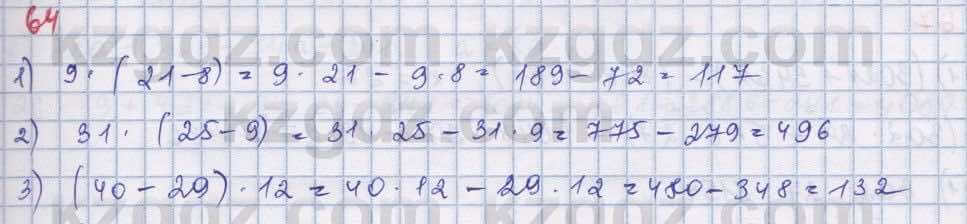 64
kzgdz.com kzgdz.com
1) 9 · (21-8) = 9 · 21 - 9 · 8 = 189 - 72 = 117
2) 31 · (25-9) = 31 · 25 - 31 · 9 = 775 - 279 = 496
3) (40 - 29) · 12 = 40 · 12 - 29 · 12 = 480 - 348 = 132